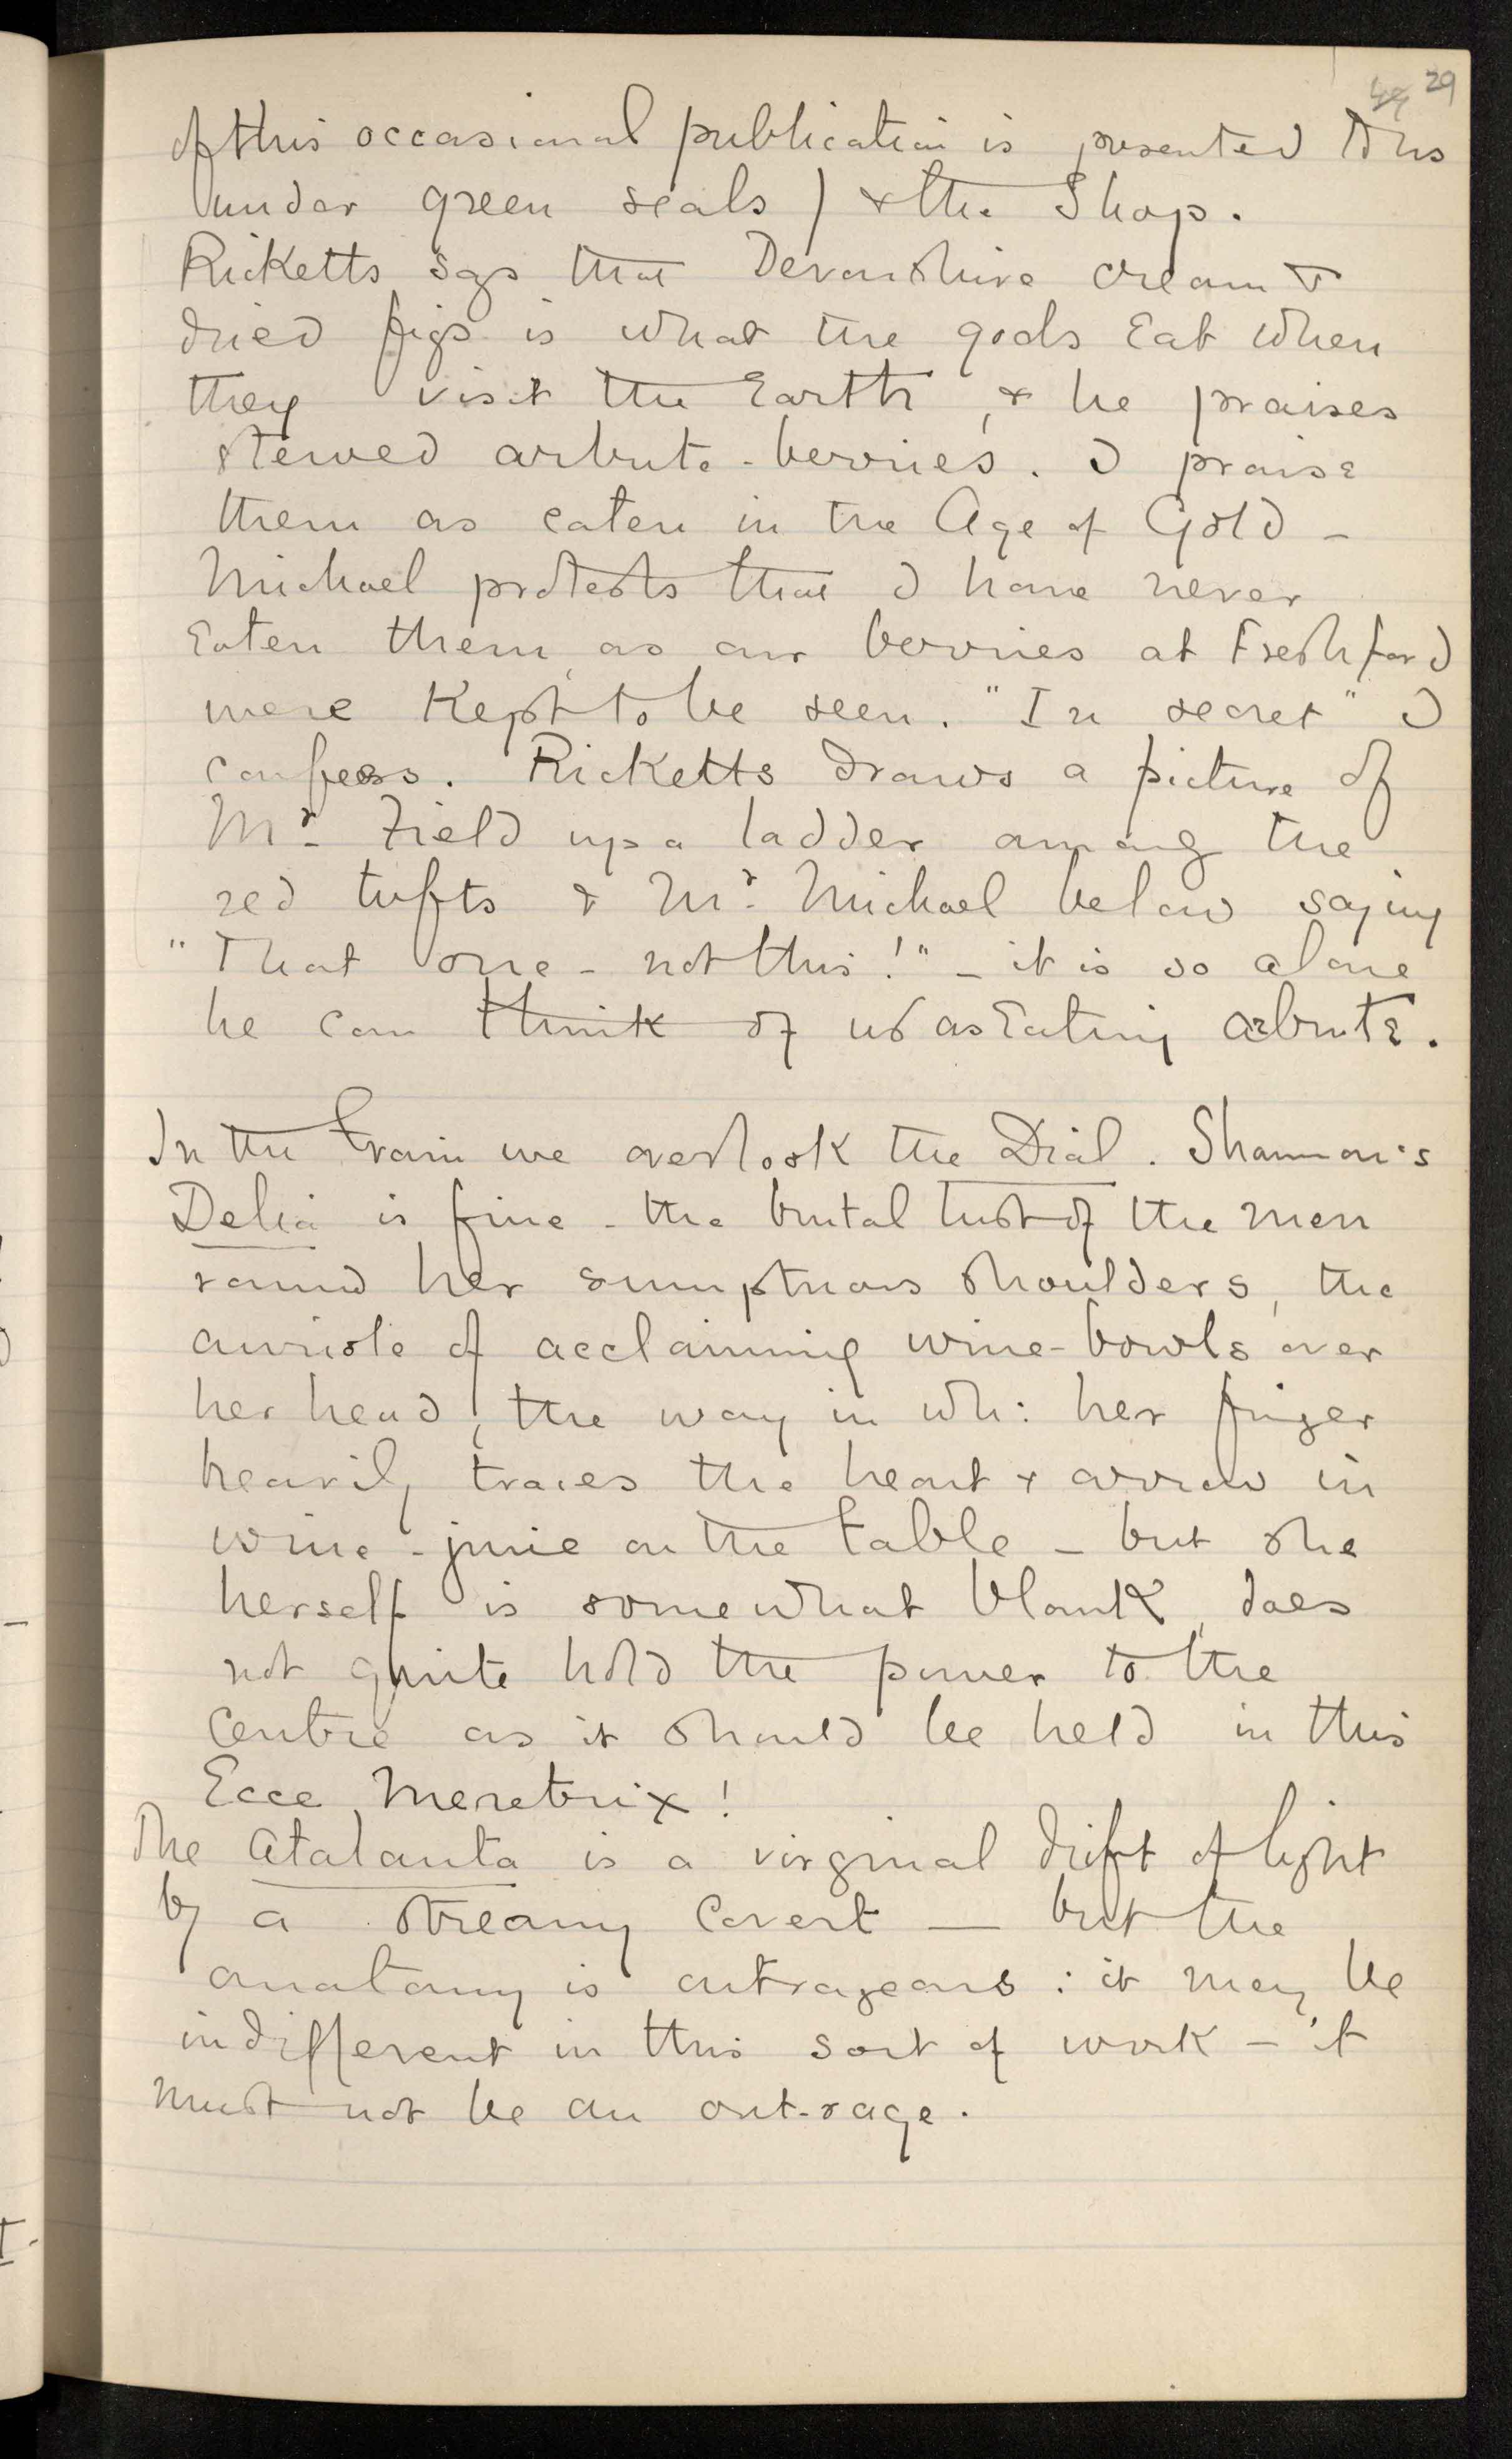 29
of this occasional publication is presented to us
under green seals) & the Shop.
Ricketts says that Devonshire cream &
dried figs is what the gods Eat when
they visit the Earth, & he praises
stewed arbute-berries. I praise
them as eaten in the Age of Gold –
Michael protests that I have never
Eaten them, as our berries at Freshford
were Kept to be seen. "In secret" I
confess. Ricketts draws a picture of
Mr. Field up a ladder among the
red tufts & Mr. Michael below saying
"That one – not this!" – it is so alone
he can think of us as Eating arbute.
In the train we overlook the Dial. Shannon's
Delia is fine – the brutal lust of the men
round her sumptuous shoulders, the
auriole of acclaiming wine-bowls over
her head, the way in wh: her finger
heavily traces the heart & arrow in
wine-juice on the table – but she
herself is somewhat blank, does
not quite hold the power to the
Centre as it should be held in this
Ecce Meretrix!
The Atalanta is a virginal drift of light
by a streamy Covert — but the
anatomy is outrageous: it may be
indifferent in this sort of work – it
must not be an out-rage.